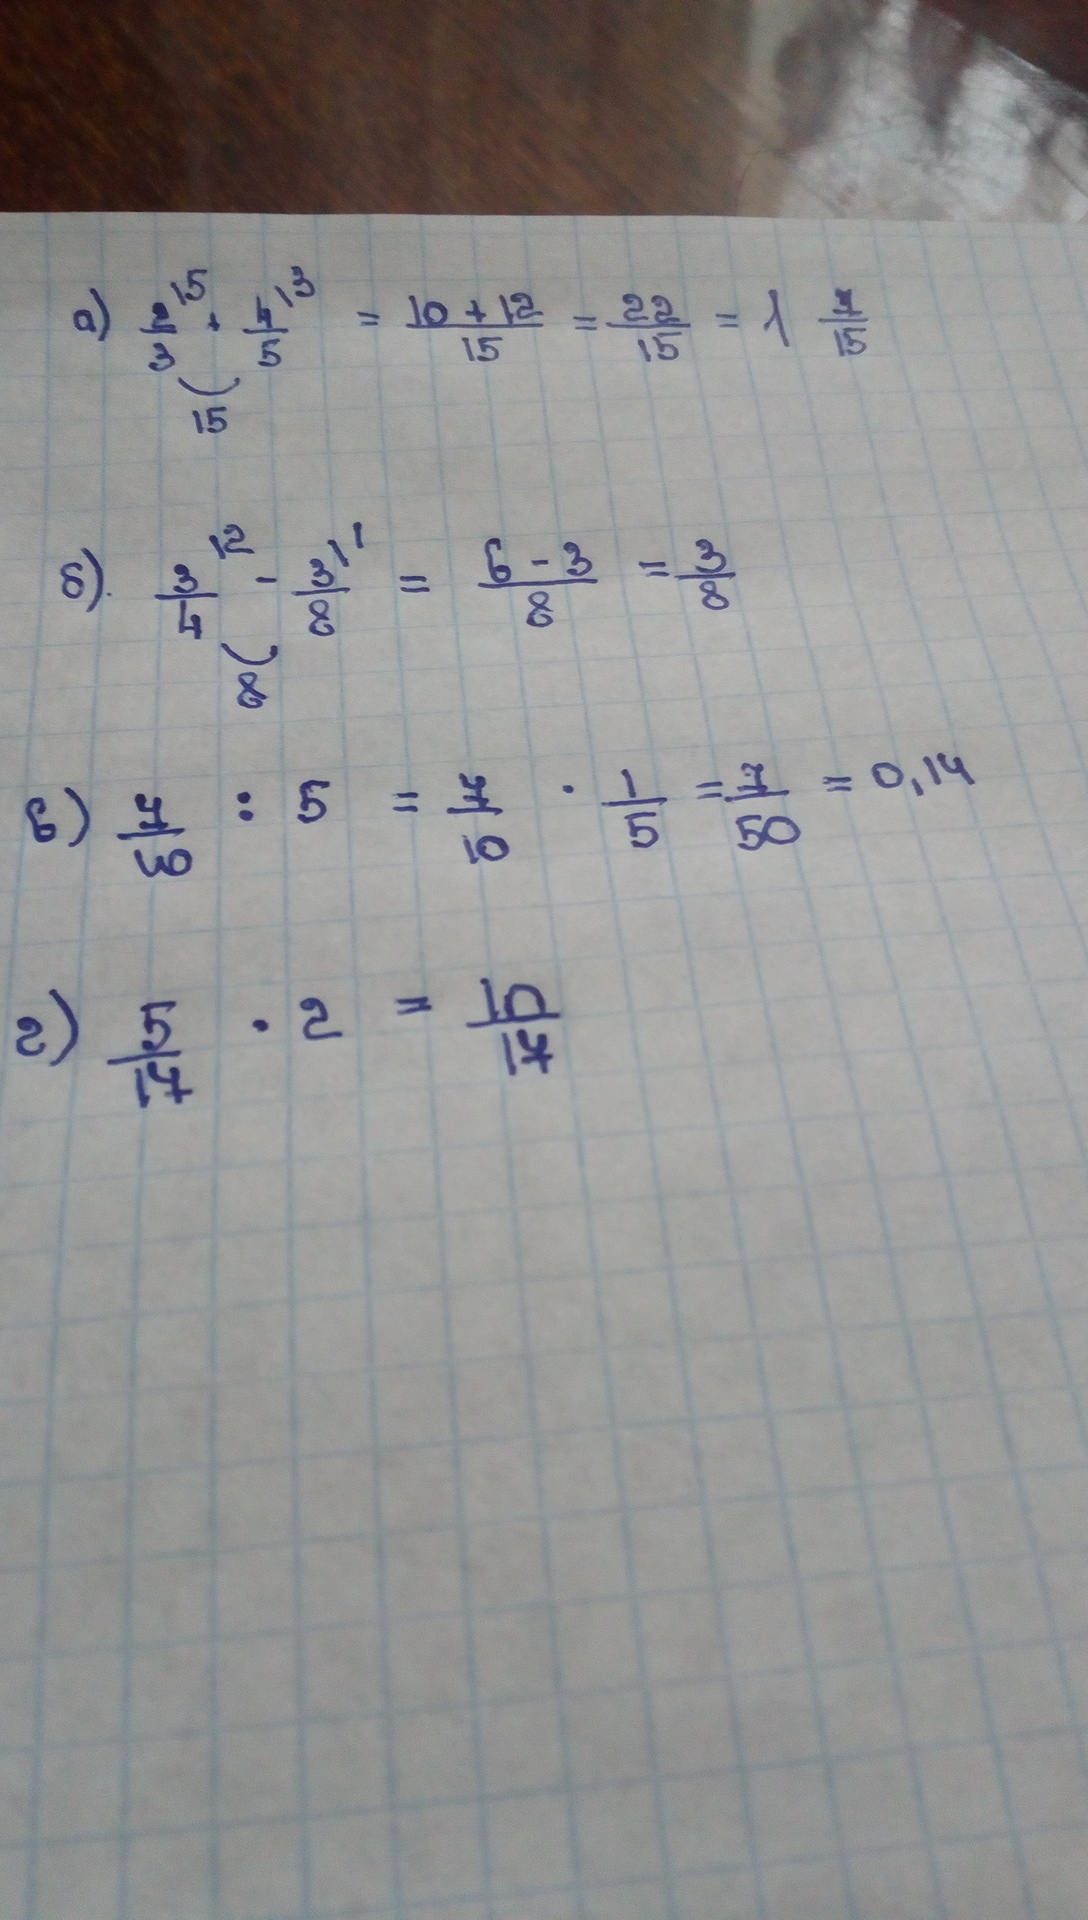 а) 2/3 \5 + 4/5 \3 = (10 + 12)/15 = 22/15 = 1 7/15
15
б). 3/4 \2 - 3/8 \1 = (6 - 3)/8 = 3/8
8
в) 7/10 : 5 = 7/10 · 1/5 = 7/50 = 0,14
г) 5/17 · 2 = 10/17